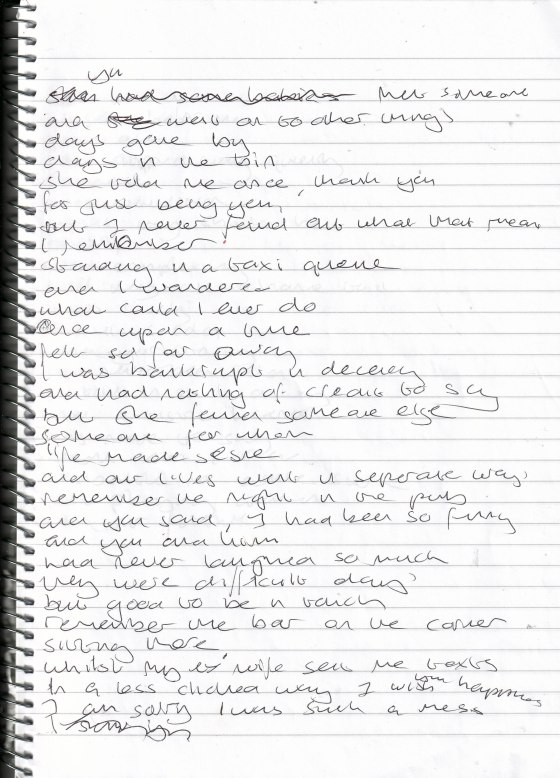 you
met someone
and went on to other things
days gone by
days in the bin
she told me once, thank you
for just being you,
but I never found out what that mean
I remember
standing in a taxi queue
and I wandered
what could I ever do
Once upon a time
felt so far away
I was bankrupt in decency
and had nothing of credit to say
but she found someone else
someone for whom
life made sense
and our lives went in seperate ways
remember the night in the pub
and you said, I had been so funny
and you and him
had never laughed so much
they were difficult days
but good to be in touch
remember the bar on the corner
sitting there
whilst my ex wife sent me texts
in a less cliched way I wish your happiness
I am sorry I was such a mess